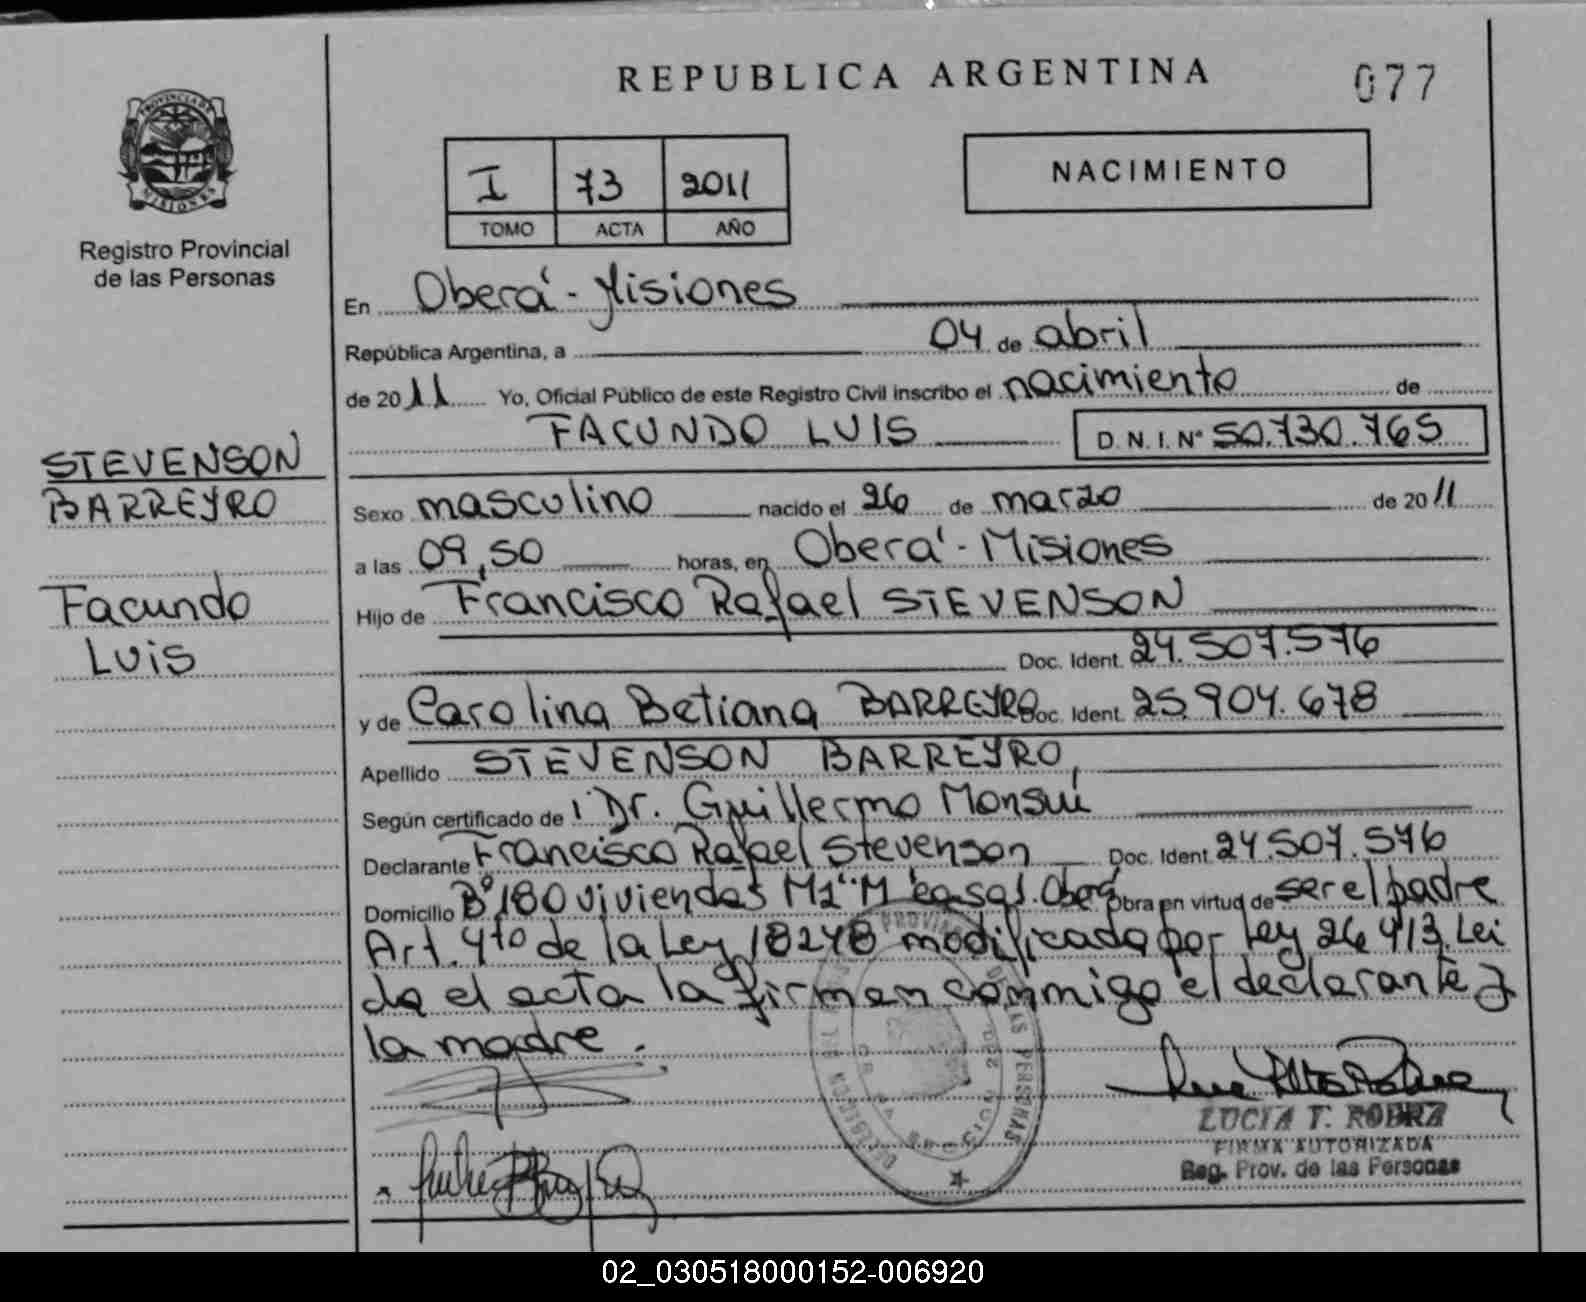 REPUBLICA ARGENTINA
077
PROVINCIA DE
MISIONES
Registro Provincial
de las Personas
I 73 2011
TOMO ACTA AÑO
NACIMIENTO
En Oberá - Misiones
República Argentina, a 04 de abril
de 2011 Yo, Oficial Público de este Registro Civil inscribo el nacimiento de
FACUNDO LUIS D.N.I. Nº 50.730.765
STEVENSON
BARREYRO
Facundo
Luis
Sexo masculino nacido el 26 de marzo de 2011
a las 09,50 horas, en Oberá - Misiones
Hijo de Francisco Rafael STEVENSON
Doc. Ident. 24.507.576
y de Carolina Betiana BARREYRO Doc. Ident. 25.904.678
Apellido STEVENSON BARREYRO,
Según certificado de Dr. Guillermo Monsui
Declarante Francisco Rafael Stevenson Doc. Ident. 24.507.576
Domicilio Bº 180 viviendas Oberá Obra en virtud de ser el padre
Art. 4to de la Ley 18248 modificada por Ley 26.413. Lei
da el acta la firman conmigo el declarante y
la madre.
LUCIA T. ROBRA
FIRMA AUTORIZADA
Reg. Prov. de las Personas
02_030518000152-006920